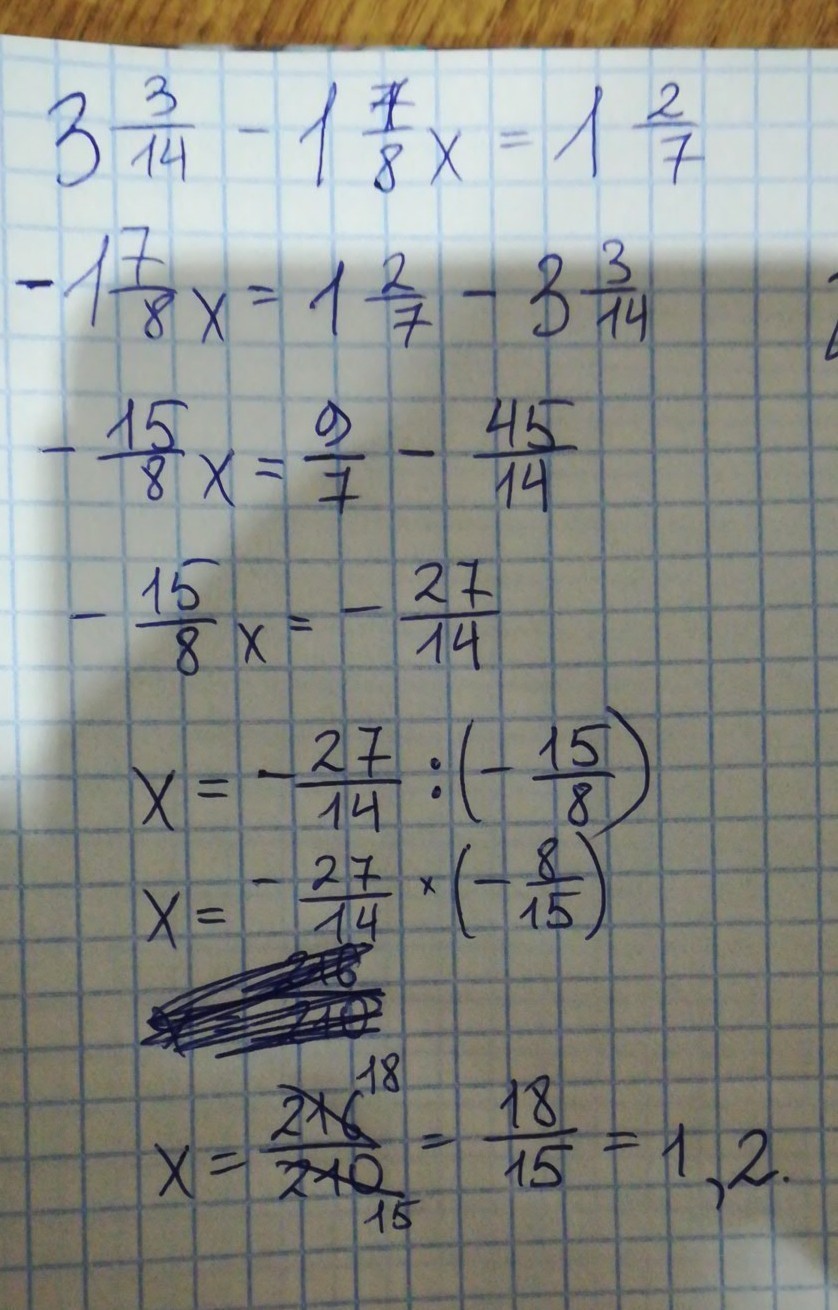 3 3/14 - 1 7/8 x = 1 2/7
-1 7/8 x = 1 2/7 - 3 3/14
- 15/8 x = 9/7 - 45/14
- 15/8 x = - 27/14
x = - 27/14 : (- 15/8)
x = - 27/14 × (- 8/15)
x = 216/210 18/15 = 18/15 = 1,2.